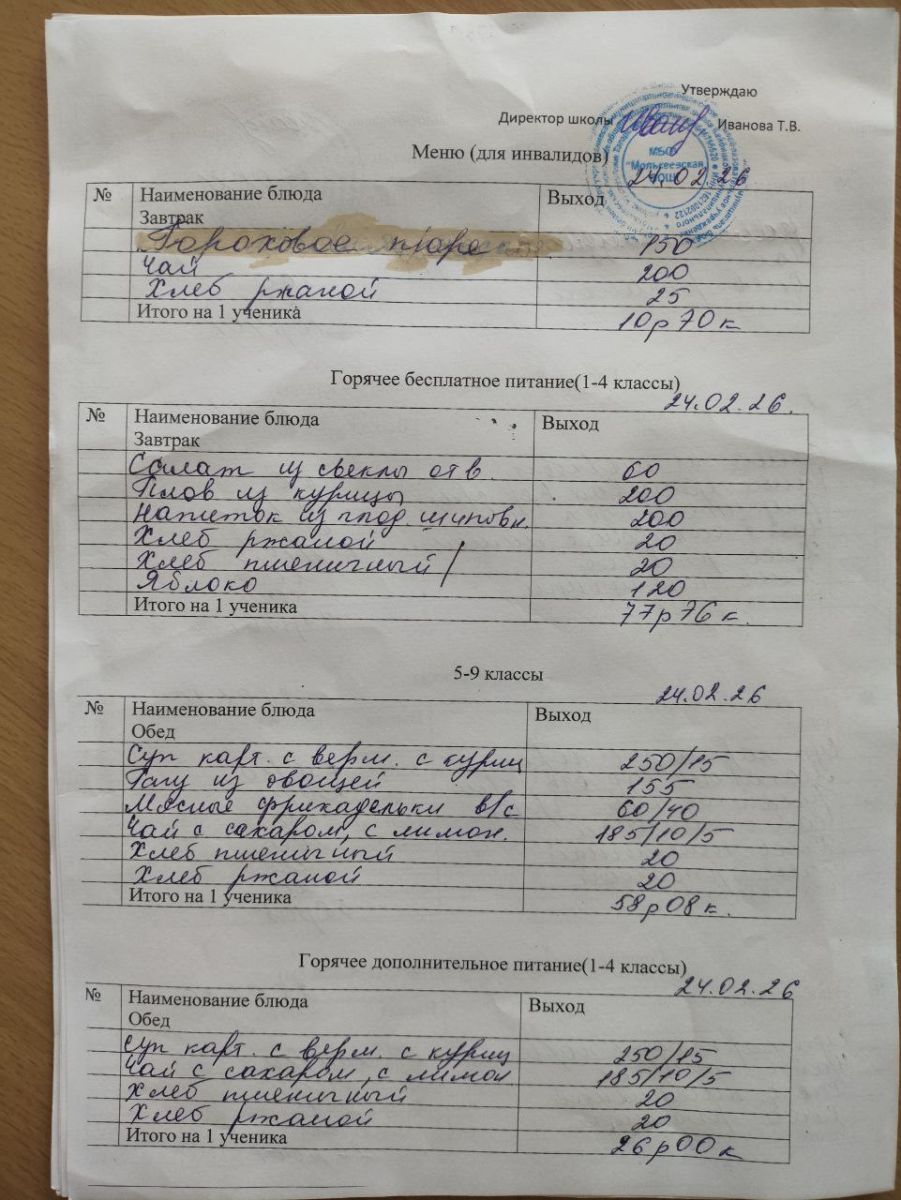 Утверждаю
Директор школы Иванова Т.В.
МБОУ
"Молькеевская
СОШ"
Меню (для инвалидов) 24.02.26
№ Наименование блюда Выход
Завтрак
Гороховое пюре 150
Чай 200
Хлеб ржаной 25
Итого на 1 ученика 10р 70к
Горячее бесплатное питание(1-4 классы)
24.02.26.
№ Наименование блюда Выход
Завтрак
Салат из свеклы отв. 60
Плов из курицы 200
Напиток из плод. шиповн. 200
Хлеб ржаной 20
Хлеб пшеничный 20
Яблоко 120
Итого на 1 ученика 77р 76к.
5-9 классы
24.02.26
№ Наименование блюда Выход
Обед
Суп карт. с верм. с куриц 250/15
Рагу из овощей 155
Мясные фрикадельки в/с 60/40
Чай с сахаром, с лимон. 185/10/5
Хлеб пшеничный 20
Хлеб ржаной 20
Итого на 1 ученика 58р 08к.
Горячее дополнительное питание(1-4 классы)
24.02.26
№ Наименование блюда Выход
Обед
Суп карт. с верм. с куриц 250/15
Чай с сахаром, с лимон 185/10/5
Хлеб пшеничный 20
Хлеб ржаной 20
Итого на 1 ученика 26р 00к